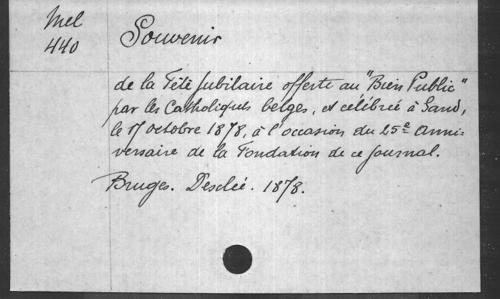 Mel
440
Souvenir
de la Fête Jubilaire offerte au "Bien Public"
par les Catholiques belges, et célébrée à Gand,
le 17 octobre 1878, à l'occasion du 25e anni-
versaire de la Fondation de ce journal.
Bruges. Desclée. 1878.